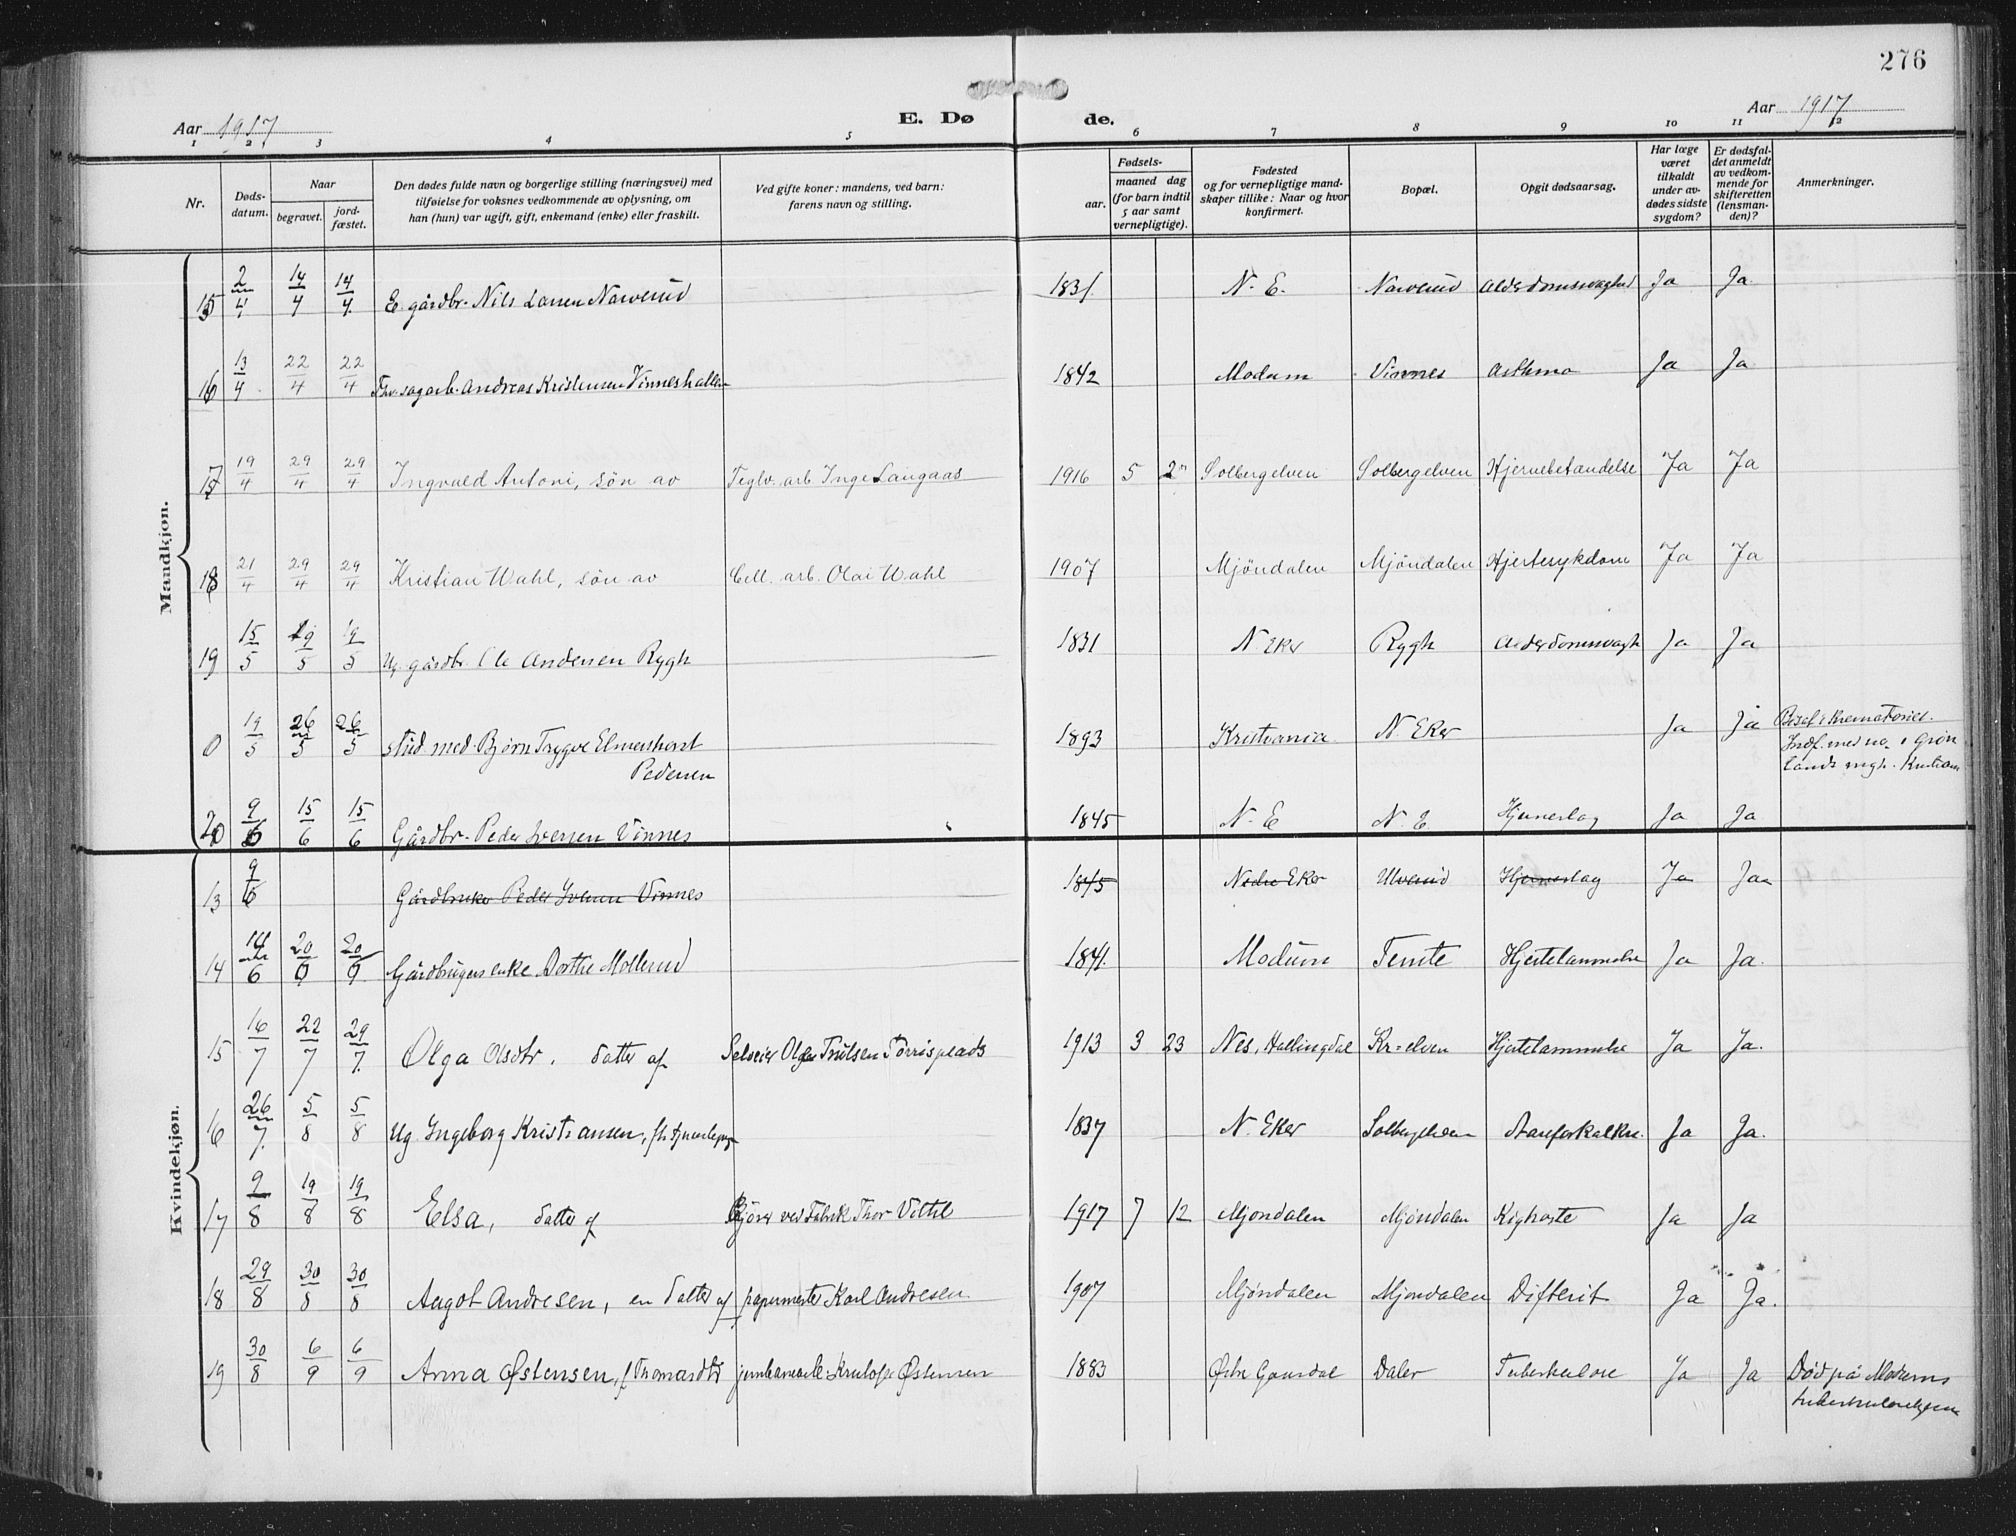 276
Aar 1917 E. Dø de. Aar 1917
1 2 3 4 5 6 7 8 9 10 11 12
Nr. Døds-datum. Naar begravet. jord-fæstet. Den dødes fulde navn og borgerlige stilling (næringsvei) med tilføielse for voksnes vedkommende av oplysning, om han (hun) var ugift, gift, enkemand (enke) eller fraskilt. Ved gifte koner: mandens, ved barn: farens navn og stilling. Fødsels- aar. maaned dag (for barn indtil 5 aar samt vernepligtige). Fødested og for vernepligtige mandskaper tillike: Naar og hvor konfirmert. Bopæl. Opgit dødsaarsag. Har læge været tilkaldt under avdødes sidste sygdom? Er dødsfaldet anmeldt av vedkommende for skifteretten (lensmanden)? Anmerkninger.
Mandkjøn.
15 2/4 14/4 14/4 E. gårdbr. Nils Larsen Narverud 1831 N. E. Narverud Alderdomssvaghed Ja Ja
16 13/4 22/4 22/4 Fhv. sagarb. Andreas Kristensen Vinneshallen 1842 Modum Vinnes Asthma Ja Ja
17 19/4 29/4 29/4 Ingvald Antoni, søn av Teglv. arb. Inge Langaas 1916 5 2 Solbergelven Solbergelven Hjernebetændelse Ja Ja
18 21/4 29/4 29/4 Kristian Wahl, søn av Cell. arb. Olai Wahl 1907 Mjöndalen Mjöndalen Hjertesykdom Ja Ja
19 15/5 19/5 19/5 Ug. gårdbr. Ole Andersen Rygh 1831 N. Eker Rygh Alderdomssvagh Ja Ja
0 19/5 26/5 26/5 stud. med. Bjørn Trygve Elmenhorst 1893 Kristiania N. Eker Ja Ja Bisat i Krematoriet.
Pedersen Indf. med no. i Grøn
lands mgh. Kristiania
20 9/6 15/6 15/6 Gårdbr. Peder Iversen Vinnes 1845 N. E N. E. Hjerneslag Ja Ja
Kvindekjøn.
13 9/6 Gårdbruker Peder Iversen Vinnes 1845 Nedre Eker Ulverud Hjerneslag Ja Jaa
14 14/6 20/6 20/6 Gårdbrugerenke Dorthe Mollerud 1841. Modum Temte Hjertelammelse Ja Ja.
15 16/7 22/7 29/7. Olga Olsdtr. datter af Selveier Ole Trulsen Torrisplads 1913 3 23 Nes, Hallingdal Kr=elven Hjertelammelse Ja Ja.
16 26/7. 5/8 5/8 Ug. Ingeborg Kristiansen, 1837 N. Eker Solbergelven Aareforkalkn. Ja Ja.
17 9/8 19/8 19/8 Elsa, datter af Kjører ved Fabrik Thor Vittil 1917 7 12 Mjondalen Mjöndalen Kighoste Ja Ja
18 29/8 30/8 30/8 Aagot Andresen, en datter af papirmester Karl Andresen 1907 Mjöndalen Mjondalen Difterit Ja Ja.
19 30/8 6/9 6/9 Anna Østensen, f. Thomasdtr jernbanearb. Kristof. Østensen 1883 Østre Gausdal Daler Tuberkulose Ja Ja Død på Modums
tuberkulosehjem